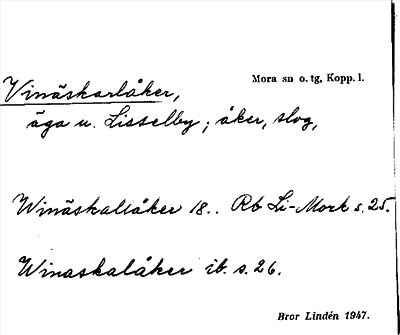 Mora sn o. tg, Kopp. l.
Vinäskarlåker,
äga u. Lisselby; åker, slog,
Winäskallåker 18.. Rb Li-Mork s. 25.
Winaskalåker ib. s. 26.
Bror Lindén 1947.